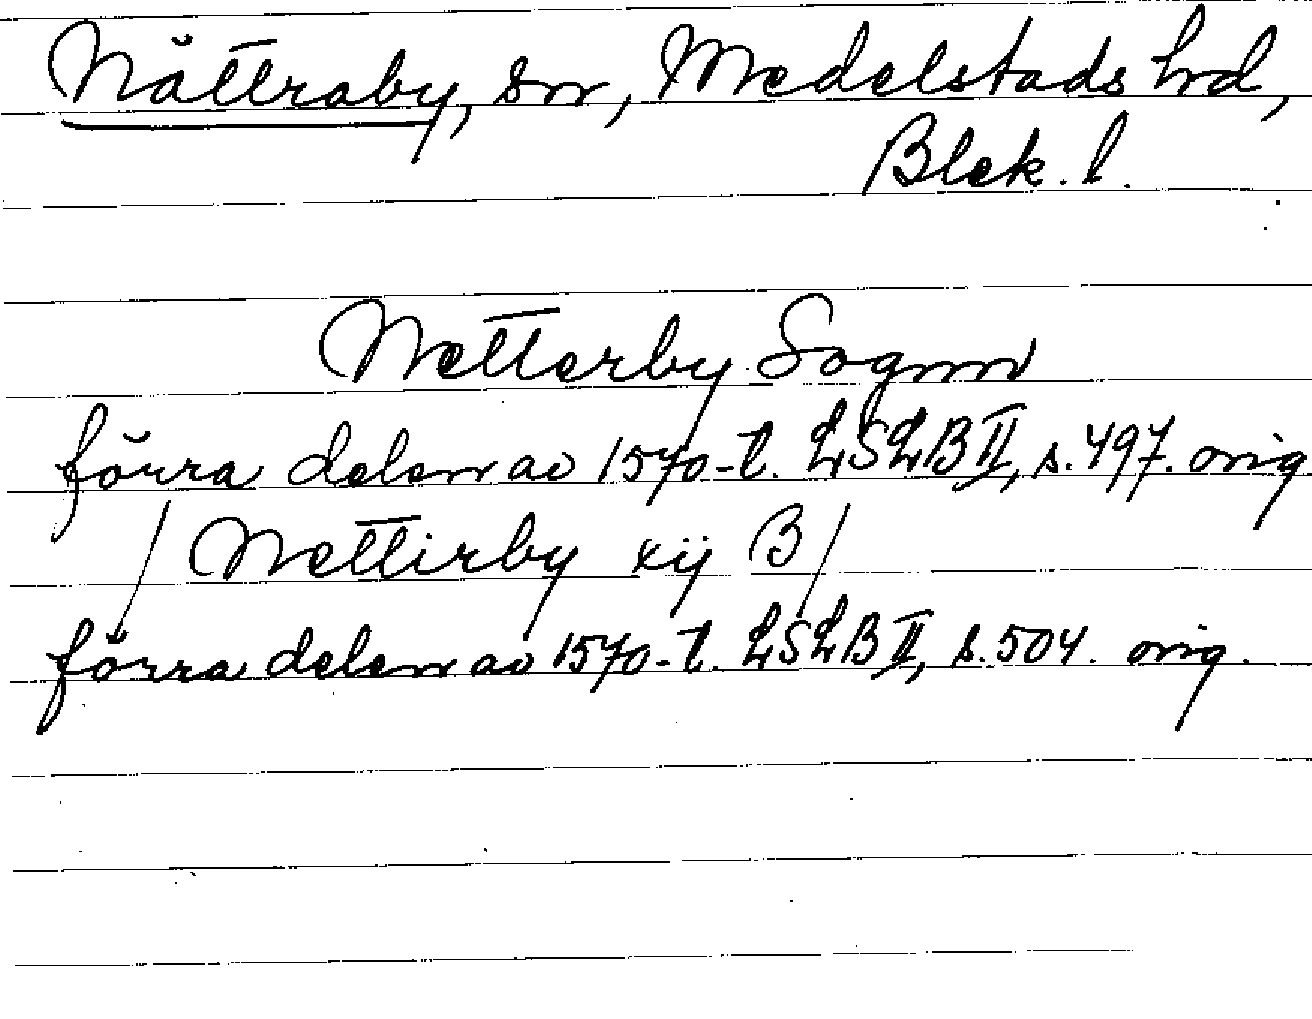 Nättraby, sn, Medelstads hd,
Blek. l.
Netterby Sognn
förra delen av 1570-t. LSLB II, s. 497. orig
/ Nettirby xij B /
förra delen av 1570-t. LSLB II, s. 504. orig.